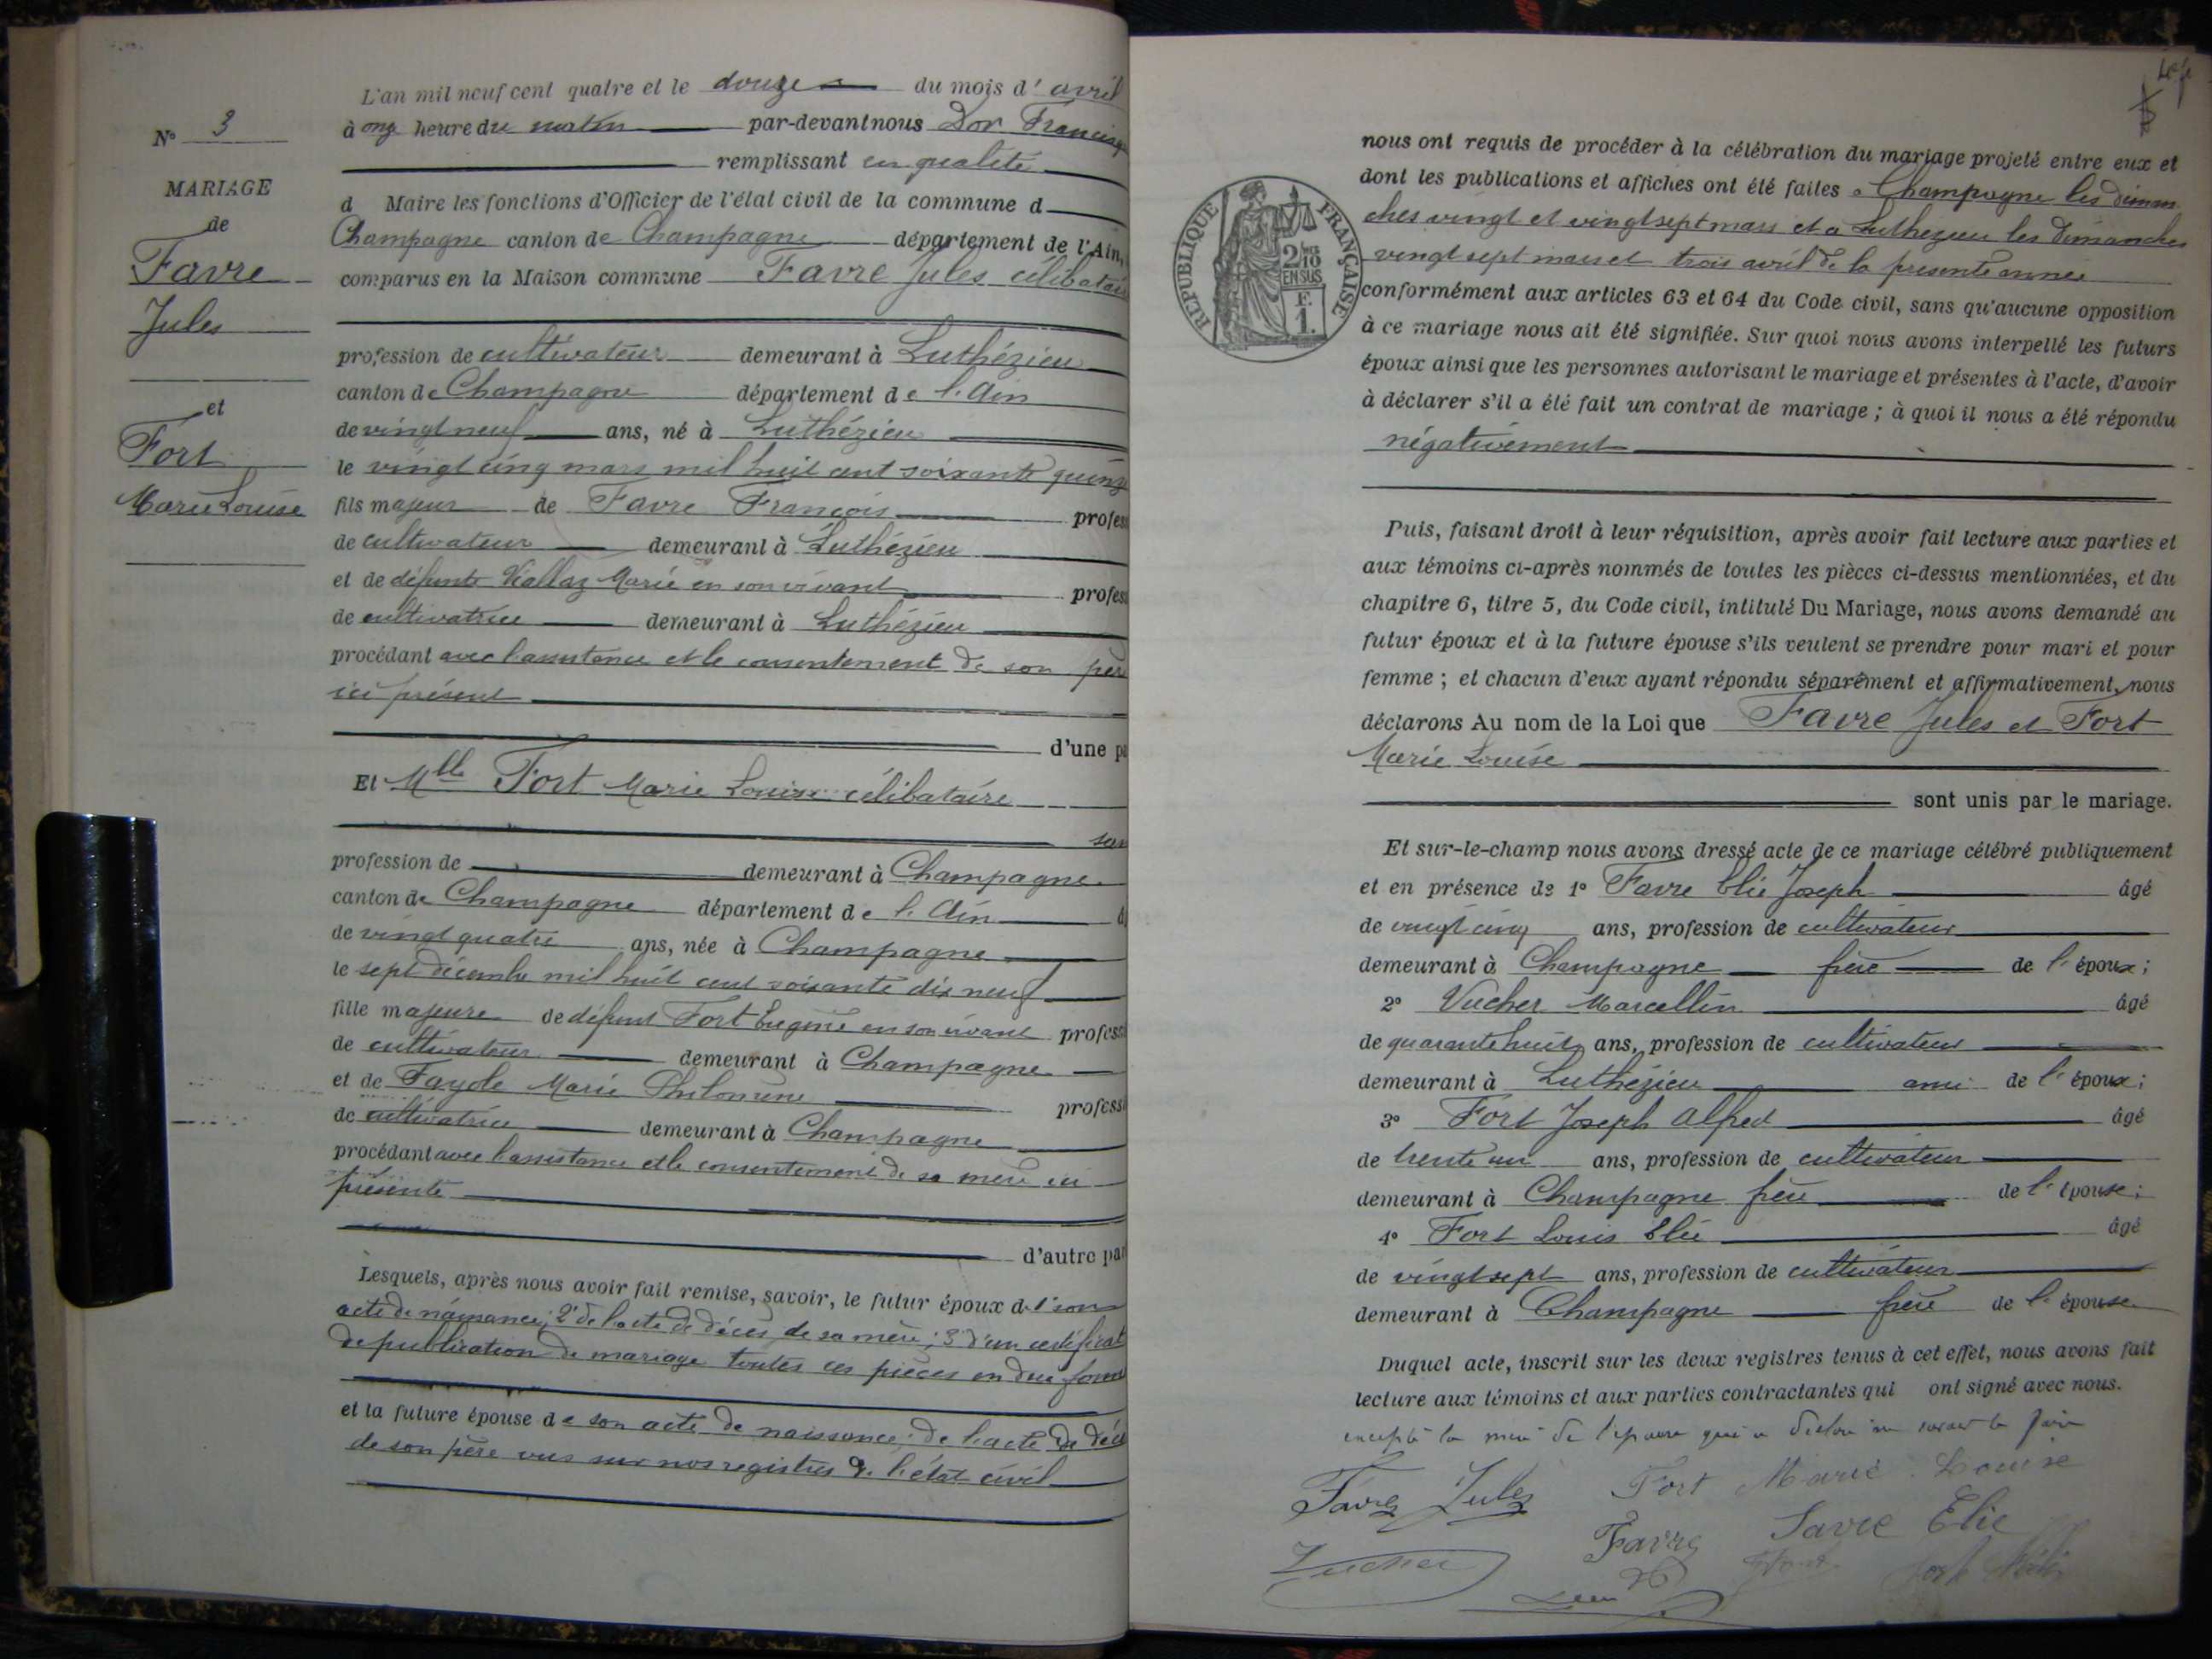 N° 3
MARIAGE
de
Favre
Jules
et
Fort
Marie Louise
L'an mil neuf cent quatre et le douze du mois d' avril
à onze heure du matin par-devant nous Dor Francisque
remplissant en qualité
d Maire les fonctions d'Officier de l'état civil de la commune d
Champagne canton de Champagne département de l'Ain,
comparus en la Maison commune Favre Jules célibataire
profession de cultivateur demeurant à Luthézieu
canton de Champagne département de l'Ain
de vingt neuf ans, né à Luthézieu
le vingt cinq mars mil huit cent soixante quinze
fils majeur de Favre François profess
de cultivateur demeurant à Luthézieu
et de défunte Viallaz Marie en son vivant profess
de cultivatrice demeurant à Luthézieu
procédant avec l'assistance et le consentement de son père
ici présent
d'une pa
Et Mlle Fort Marie Louise célibataire
san
profession de demeurant à Champagne
canton de Champagne département de l'Ain
de vingt quatre ans, née à Champagne
le sept décembre mil huit cent soixante dix neuf
fille majeure de défunt Fort Eugène en son vivant professi
de cultivateur demeurant à Champagne
et de Fayole Marie Philomène professi
de cultivatrice demeurant à Champagne
procédant avec l'assistance et le consentement de sa mère ici
présente
d'autre par
Lesquels, après nous avoir fait remise, savoir, le futur époux de 1° son
acte de naissance; 2° de l'acte de décès de sa mère; 3° d'un certificat
de publication de mariage toutes ces pièces en due forme
et la future épouse de son acte de naissance; de l'acte de décè
de son père vus sur nos registres de l'état civil
RÉPUBLIQUE FRANÇAISE
2/10
EN SUS
F.
1.
nous ont requis de procéder à la célébration du mariage projeté entre eux et
dont les publications et affiches ont été faites à Champagne les diman-
ches vingt et vingt sept mars et à Luthézieu les dimanches
vingt sept mars et trois avril de la présente année
conformément aux articles 63 et 64 du Code civil, sans qu'aucune opposition
à ce mariage nous ait été signifiée. Sur quoi nous avons interpellé les futurs
époux ainsi que les personnes autorisant le mariage et présentes à l'acte, d'avoir
à déclarer s'il a été fait un contrat de mariage ; à quoi il nous a été répondu
négativement
Puis, faisant droit à leur réquisition, après avoir fait lecture aux parties et
aux témoins ci-après nommés de toutes les pièces ci-dessus mentionnées, et du
chapitre 6, titre 5, du Code civil, intitulé Du Mariage, nous avons demandé au
futur époux et à la future épouse s'ils veulent se prendre pour mari et pour
femme ; et chacun d'eux ayant répondu séparément et affirmativement, nous
déclarons Au nom de la Loi que Favre Jules et Fort
Marie Louise
sont unis par le mariage.
Et sur-le-champ nous avons dressé acte de ce mariage célébré publiquement
et en présence de 1° Favre Elie Joseph âgé
de vingt cinq ans, profession de cultivateur
demeurant à Champagne frère de l'époux ;
2° Vucher Marcellin âgé
de quarante huit ans, profession de cultivateur
demeurant à Luthézieu ami de l'époux ;
3° Fort Joseph Alfred âgé
de trente un ans, profession de cultivateur
demeurant à Champagne frère de l'épouse ;
4° Fort Louis Elie âgé
de vingt sept ans, profession de cultivateur
demeurant à Champagne frère de l'épouse
Duquel acte, inscrit sur les deux registres tenus à cet effet, nous avons fait
lecture aux témoins et aux parties contractantes qui ont signé avec nous.
excepté la mère de l'épouse qui a déclaré ne savoir le faire
Favre Jules Fort Marie Louise
Favre Favre Elie
Vucher